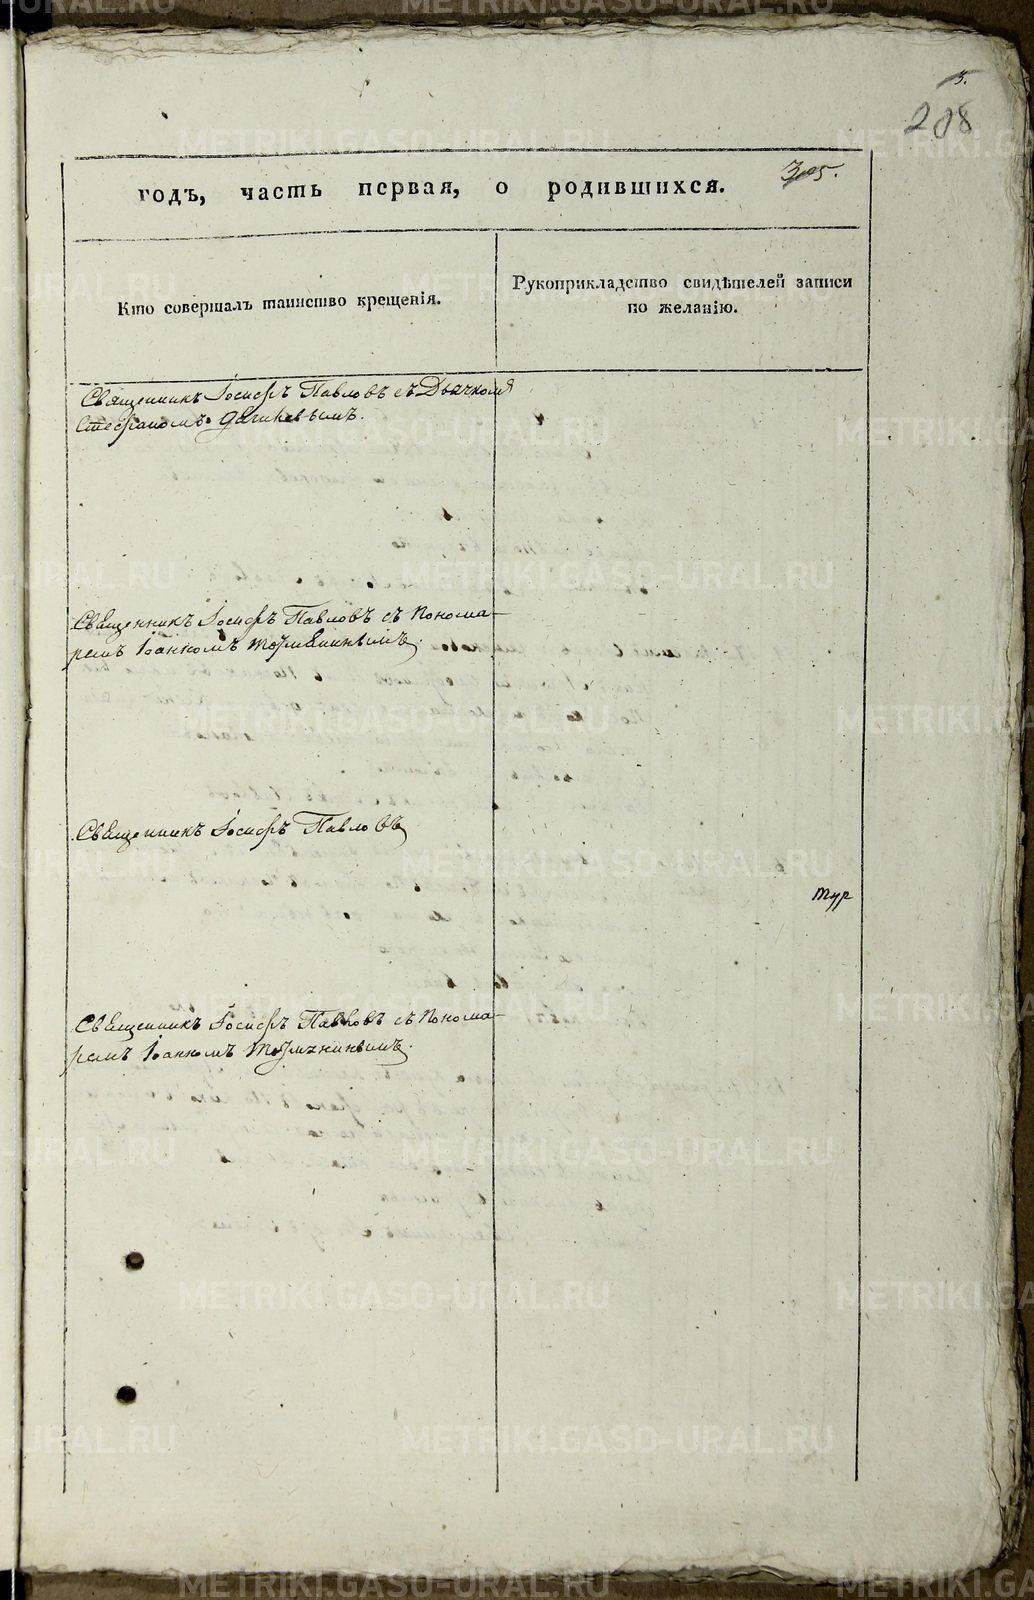 5.
208
305.
годъ, часть первая, о родившихся.
Кто совершалъ таинство крещенія.
Рукоприкладство свидѣтелей записи
по желанію.
Священникъ Іосифъ Павловъ съ Дьячкомъ
Стефаномъ
Священникъ Іосифъ Павловъ съ Понома-
ремъ Іоанномъ
Священникъ Іосифъ Павловъ
тур
Священникъ Іосифъ Павловъ съ Понома-
ремъ Іоанномъ
METRIKI.GASO-URAL.RU